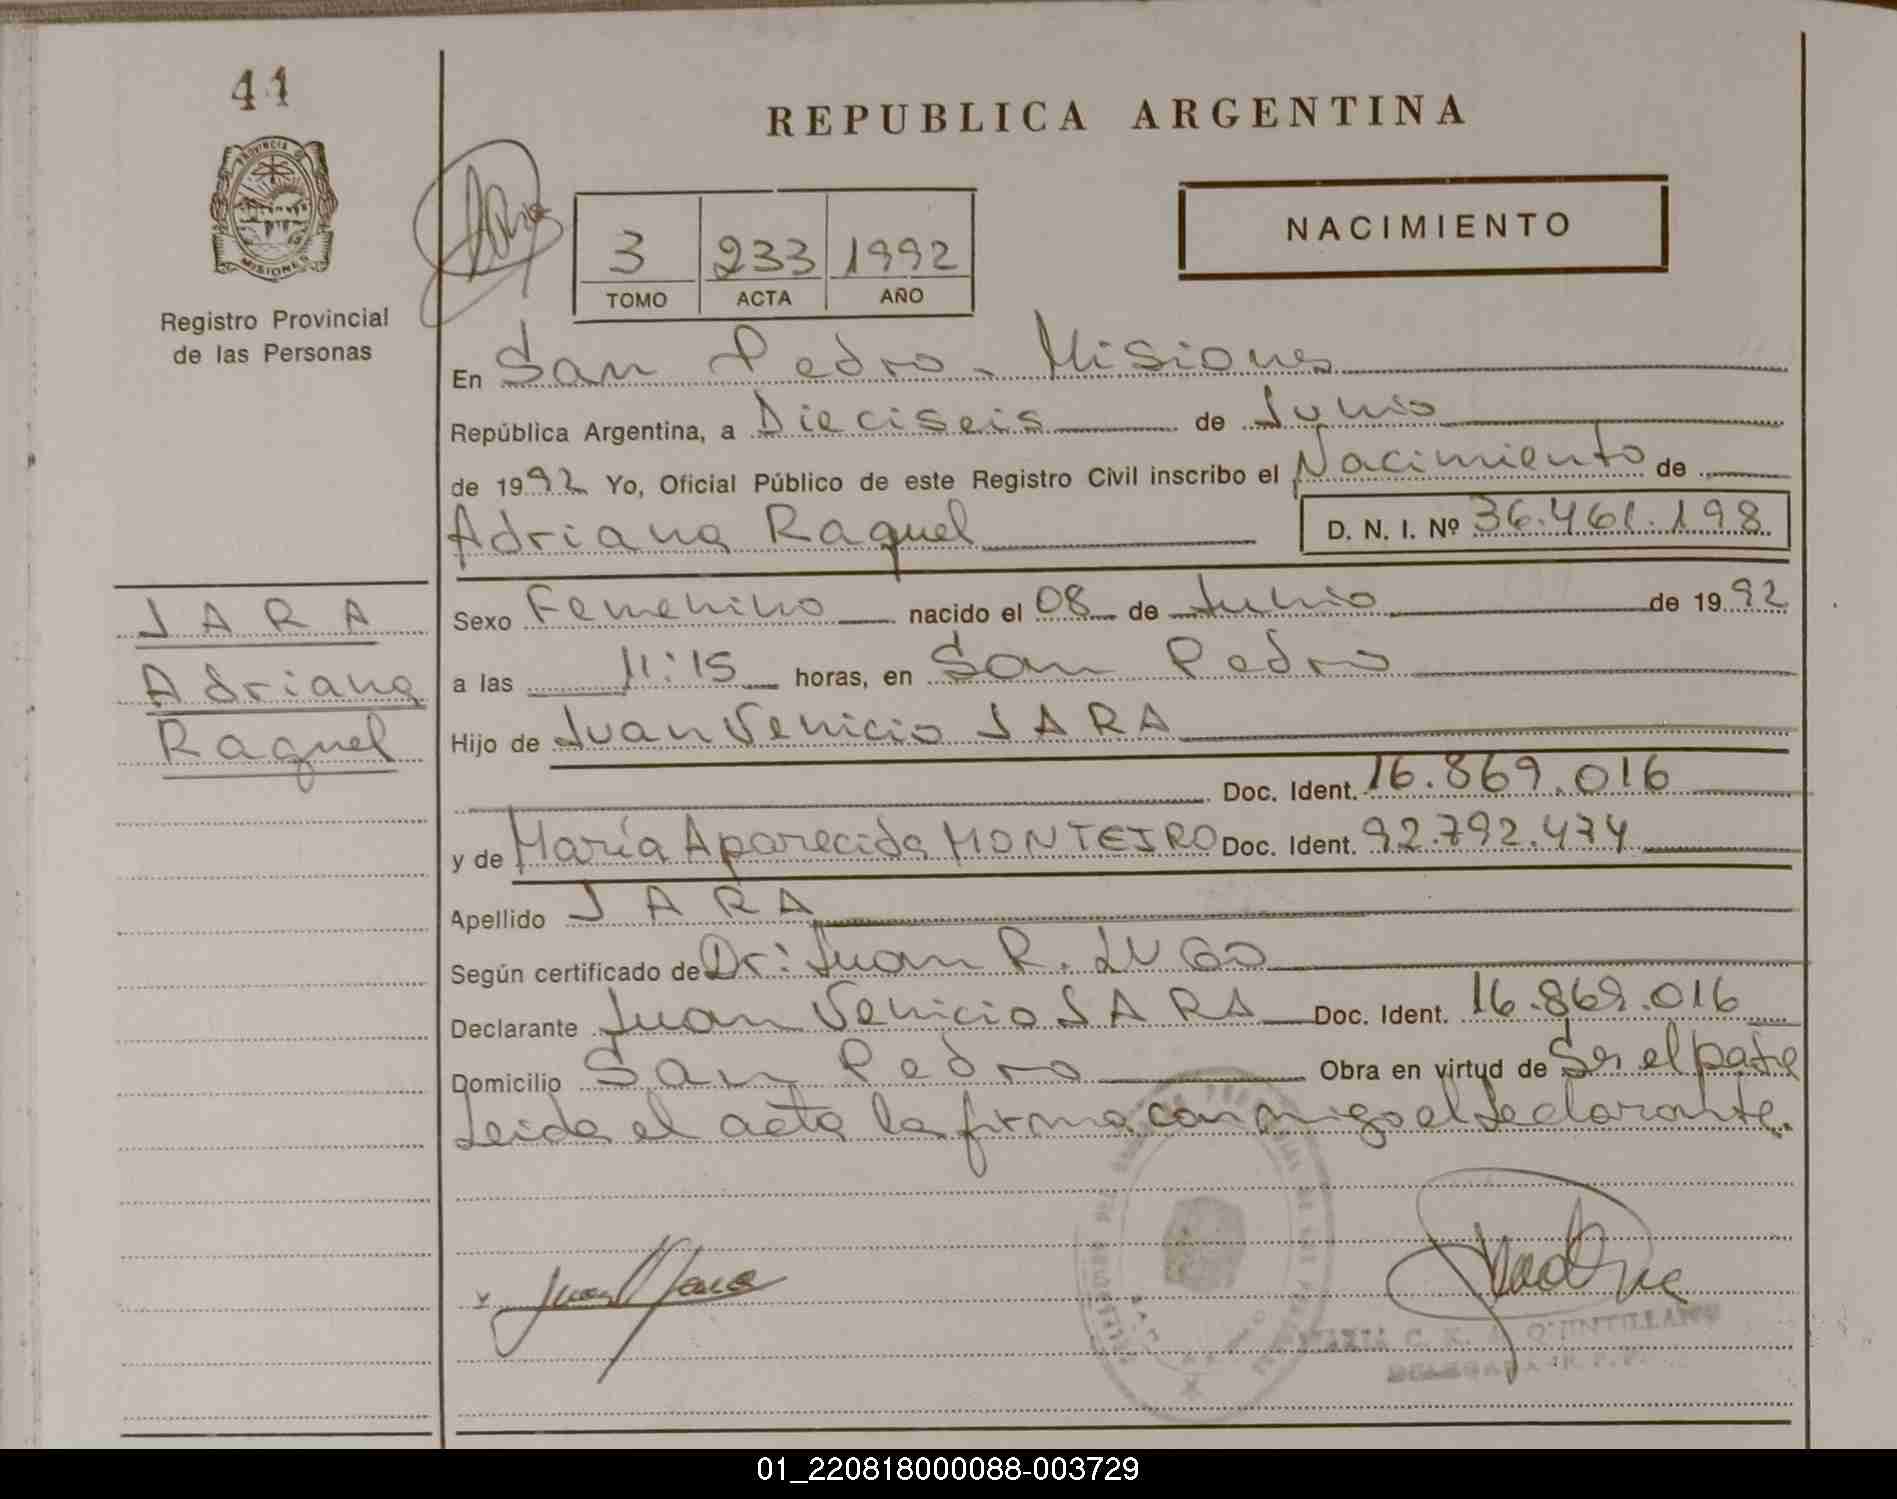 41
PROVINCIA DE
MISIONES
Registro Provincial
de las Personas
REPUBLICA ARGENTINA
NACIMIENTO
3 233 1992
TOMO ACTA AÑO
En San Pedro - Misiones
República Argentina, a Dieciseis de Junio
de 1992 Yo, Oficial Público de este Registro Civil inscribo el Nacimiento de
Adriana Raquel D. N. I. Nº 36.461.198
JARA
Adriana
Raquel
Sexo Femenino nacido el 08 de Junio de 1992
a las 11:15 horas, en San Pedro
Hijo de Juan Venicio JARA
Doc. Ident. 16.869.016
y de María Aparecida MONTEIRO Doc. Ident. 92.792.474
Apellido JARA
Según certificado de Dr: Juan R. LUGO
Declarante Juan Venicio JARA Doc. Ident. 16.869.016
Domicilio San Pedro Obra en virtud de Ser el padre
Leida el acta la firma conmigo el declarante.
QUINTILLANO
DELEGADA R.P.P.
01_220818000088-003729